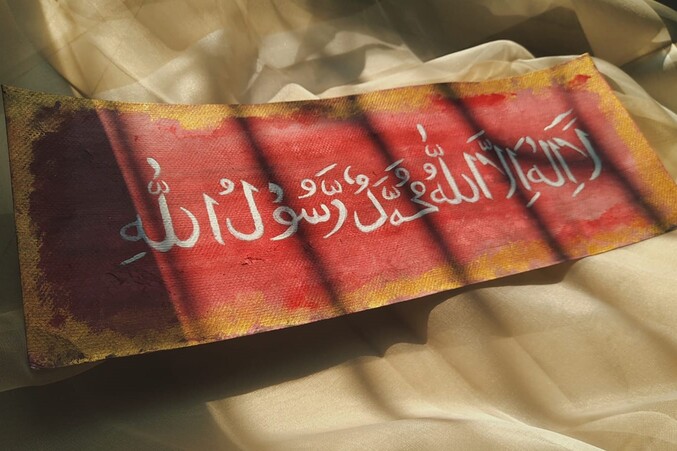 لَا إِلٰهَ إِلَّا اللّٰهُ مُحَمَّدٌ رَّسُوْلُ اللّٰهِ